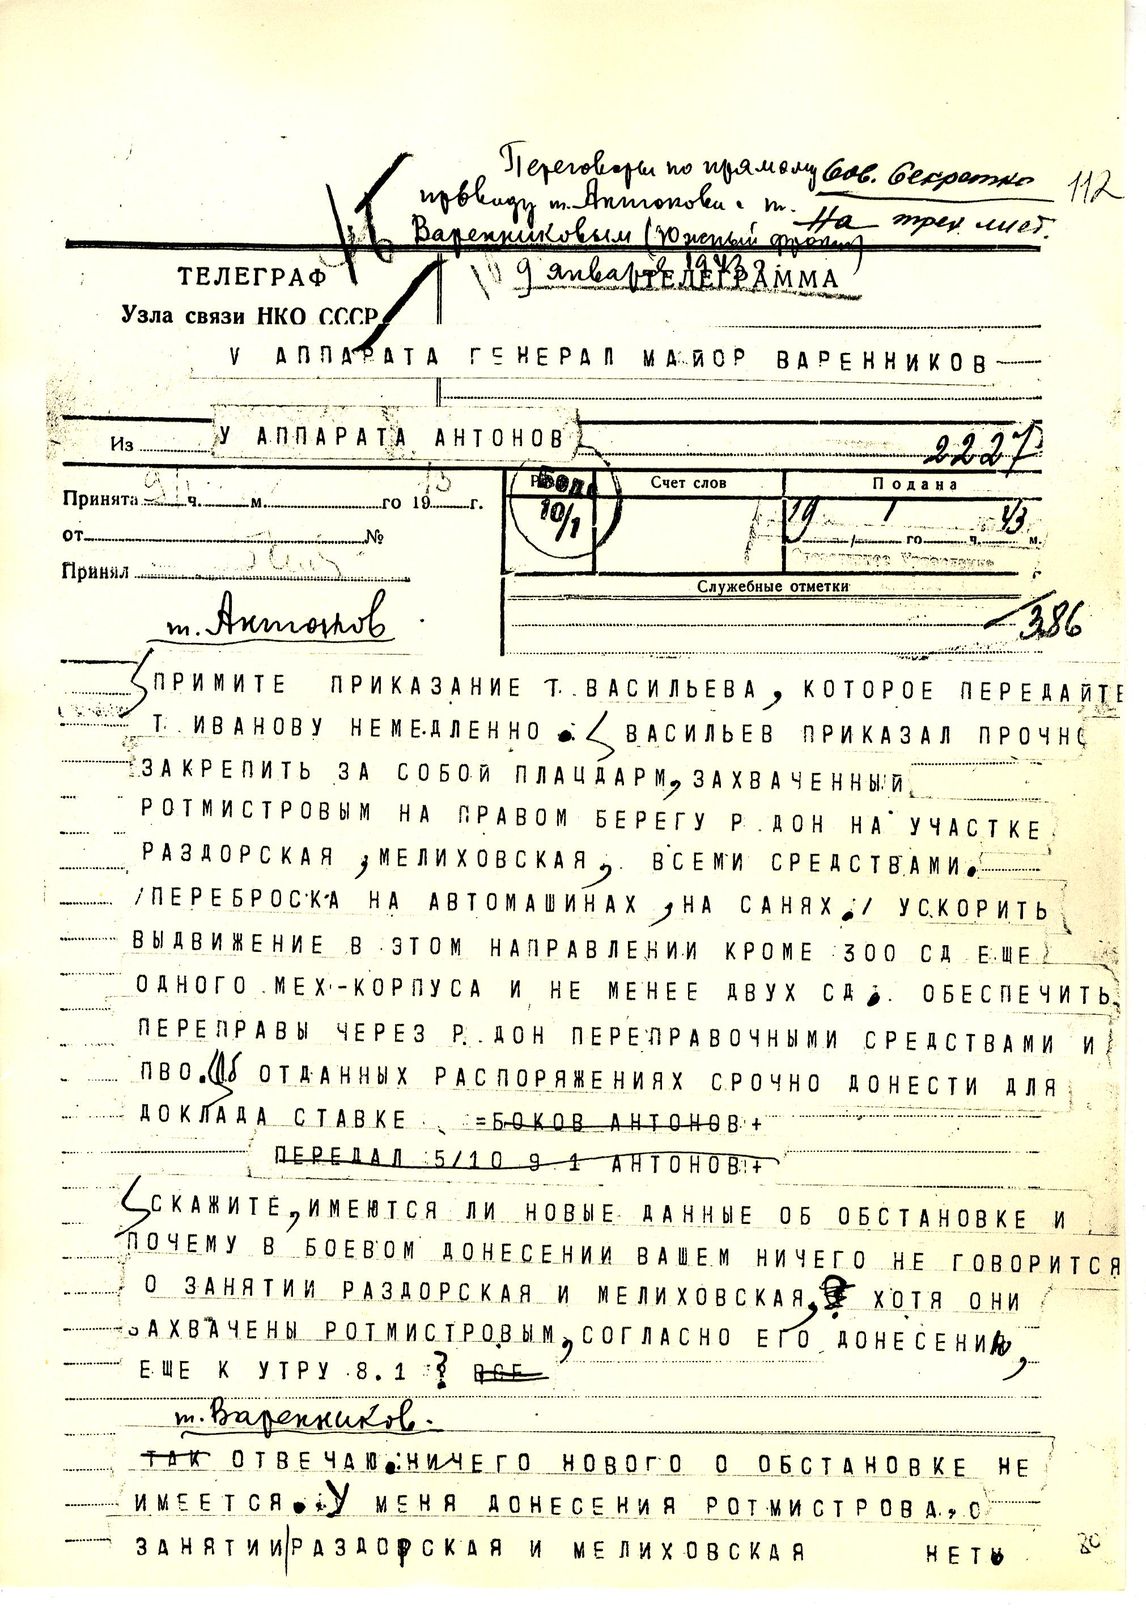 Переговоры по прямому
Сов. Секретно
112
проводу т. Антонова с т.
На трех лист.
Варенниковым (Южный фронт)
9 января 1943 г.
ТЕЛЕГРАФ
ТЕЛЕГРАММА
Узла связи НКО СССР
V АППАРАТА ГЕНЕРАЛ МАЙОР ВАРЕННИКОВ
Из У АППАРАТА АНТОНОВ
2227
Принята ч. м. го 19 г.
Счет слов
Подана
10/1
19 1 43
го ч. м.
от №
Принял
Служебные отметки
386
т. Антонов
ПРИМИТЕ ПРИКАЗАНИЕ Т. ВАСИЛЬЕВА, КОТОРОЕ ПЕРЕДАЙТЕ
Т. ИВАНОВУ НЕМЕДЛЕННО. ВАСИЛЬЕВ ПРИКАЗАЛ ПРОЧНО
ЗАКРЕПИТЬ ЗА СОБОЙ ПЛАЦДАРМ, ЗАХВАЧЕННЫЙ
РОТМИСТРОВЫМ НА ПРАВОМ БЕРЕГУ Р. ДОН НА УЧАСТКЕ
РАЗДОРСКАЯ, МЕЛИХОВСКАЯ, ВСЕМИ СРЕДСТВАМИ.
/ПЕРЕБРОСКА НА АВТОМАШИНАХ, НА САНЯХ./ УСКОРИТЬ
ВЫДВИЖЕНИЕ В ЭТОМ НАПРАВЛЕНИИ КРОМЕ 300 СД ЕЩЕ
ОДНОГО МЕХ-КОРПУСА И НЕ МЕНЕЕ ДВУХ СД. ОБЕСПЕЧИТЬ
ПЕРЕПРАВЫ ЧЕРЕЗ Р. ДОН ПЕРЕПРАВОЧНЫМИ СРЕДСТВАМИ И
ПВО. Об ОТДАННЫХ РАСПОРЯЖЕНИЯХ СРОЧНО ДОНЕСТИ ДЛЯ
ДОКЛАДА СТАВКЕ =БОКОВ АНТОНОВ+
ПЕРЕДАЛ 5/10 9 1 АНТОНОВ+
СКАЖИТЕ, ИМЕЮТСЯ ЛИ НОВЫЕ ДАННЫЕ ОБ ОБСТАНОВКЕ И
ПОЧЕМУ В БОЕВОМ ДОНЕСЕНИИ ВАШЕМ НИЧЕГО НЕ ГОВОРИТСЯ
О ЗАНЯТИИ РАЗДОРСКАЯ И МЕЛИХОВСКАЯ, ХОТЯ ОНИ
ЗАХВАЧЕНЫ РОТМИСТРОВЫМ, СОГЛАСНО ЕГО ДОНЕСЕНИЮ,
ЕЩЕ К УТРУ 8.1 ? ВСЕ
т. Варенников.
ТАК ОТВЕЧАЮ. НИЧЕГО НОВОГО О ОБСТАНОВКЕ НЕ
ИМЕЕТСЯ. У МЕНЯ ДОНЕСЕНИЯ РОТМИСТРОВА, О
ЗАНЯТИИ РАЗДОРСКАЯ И МЕЛИХОВСКАЯ НЕТ.
80